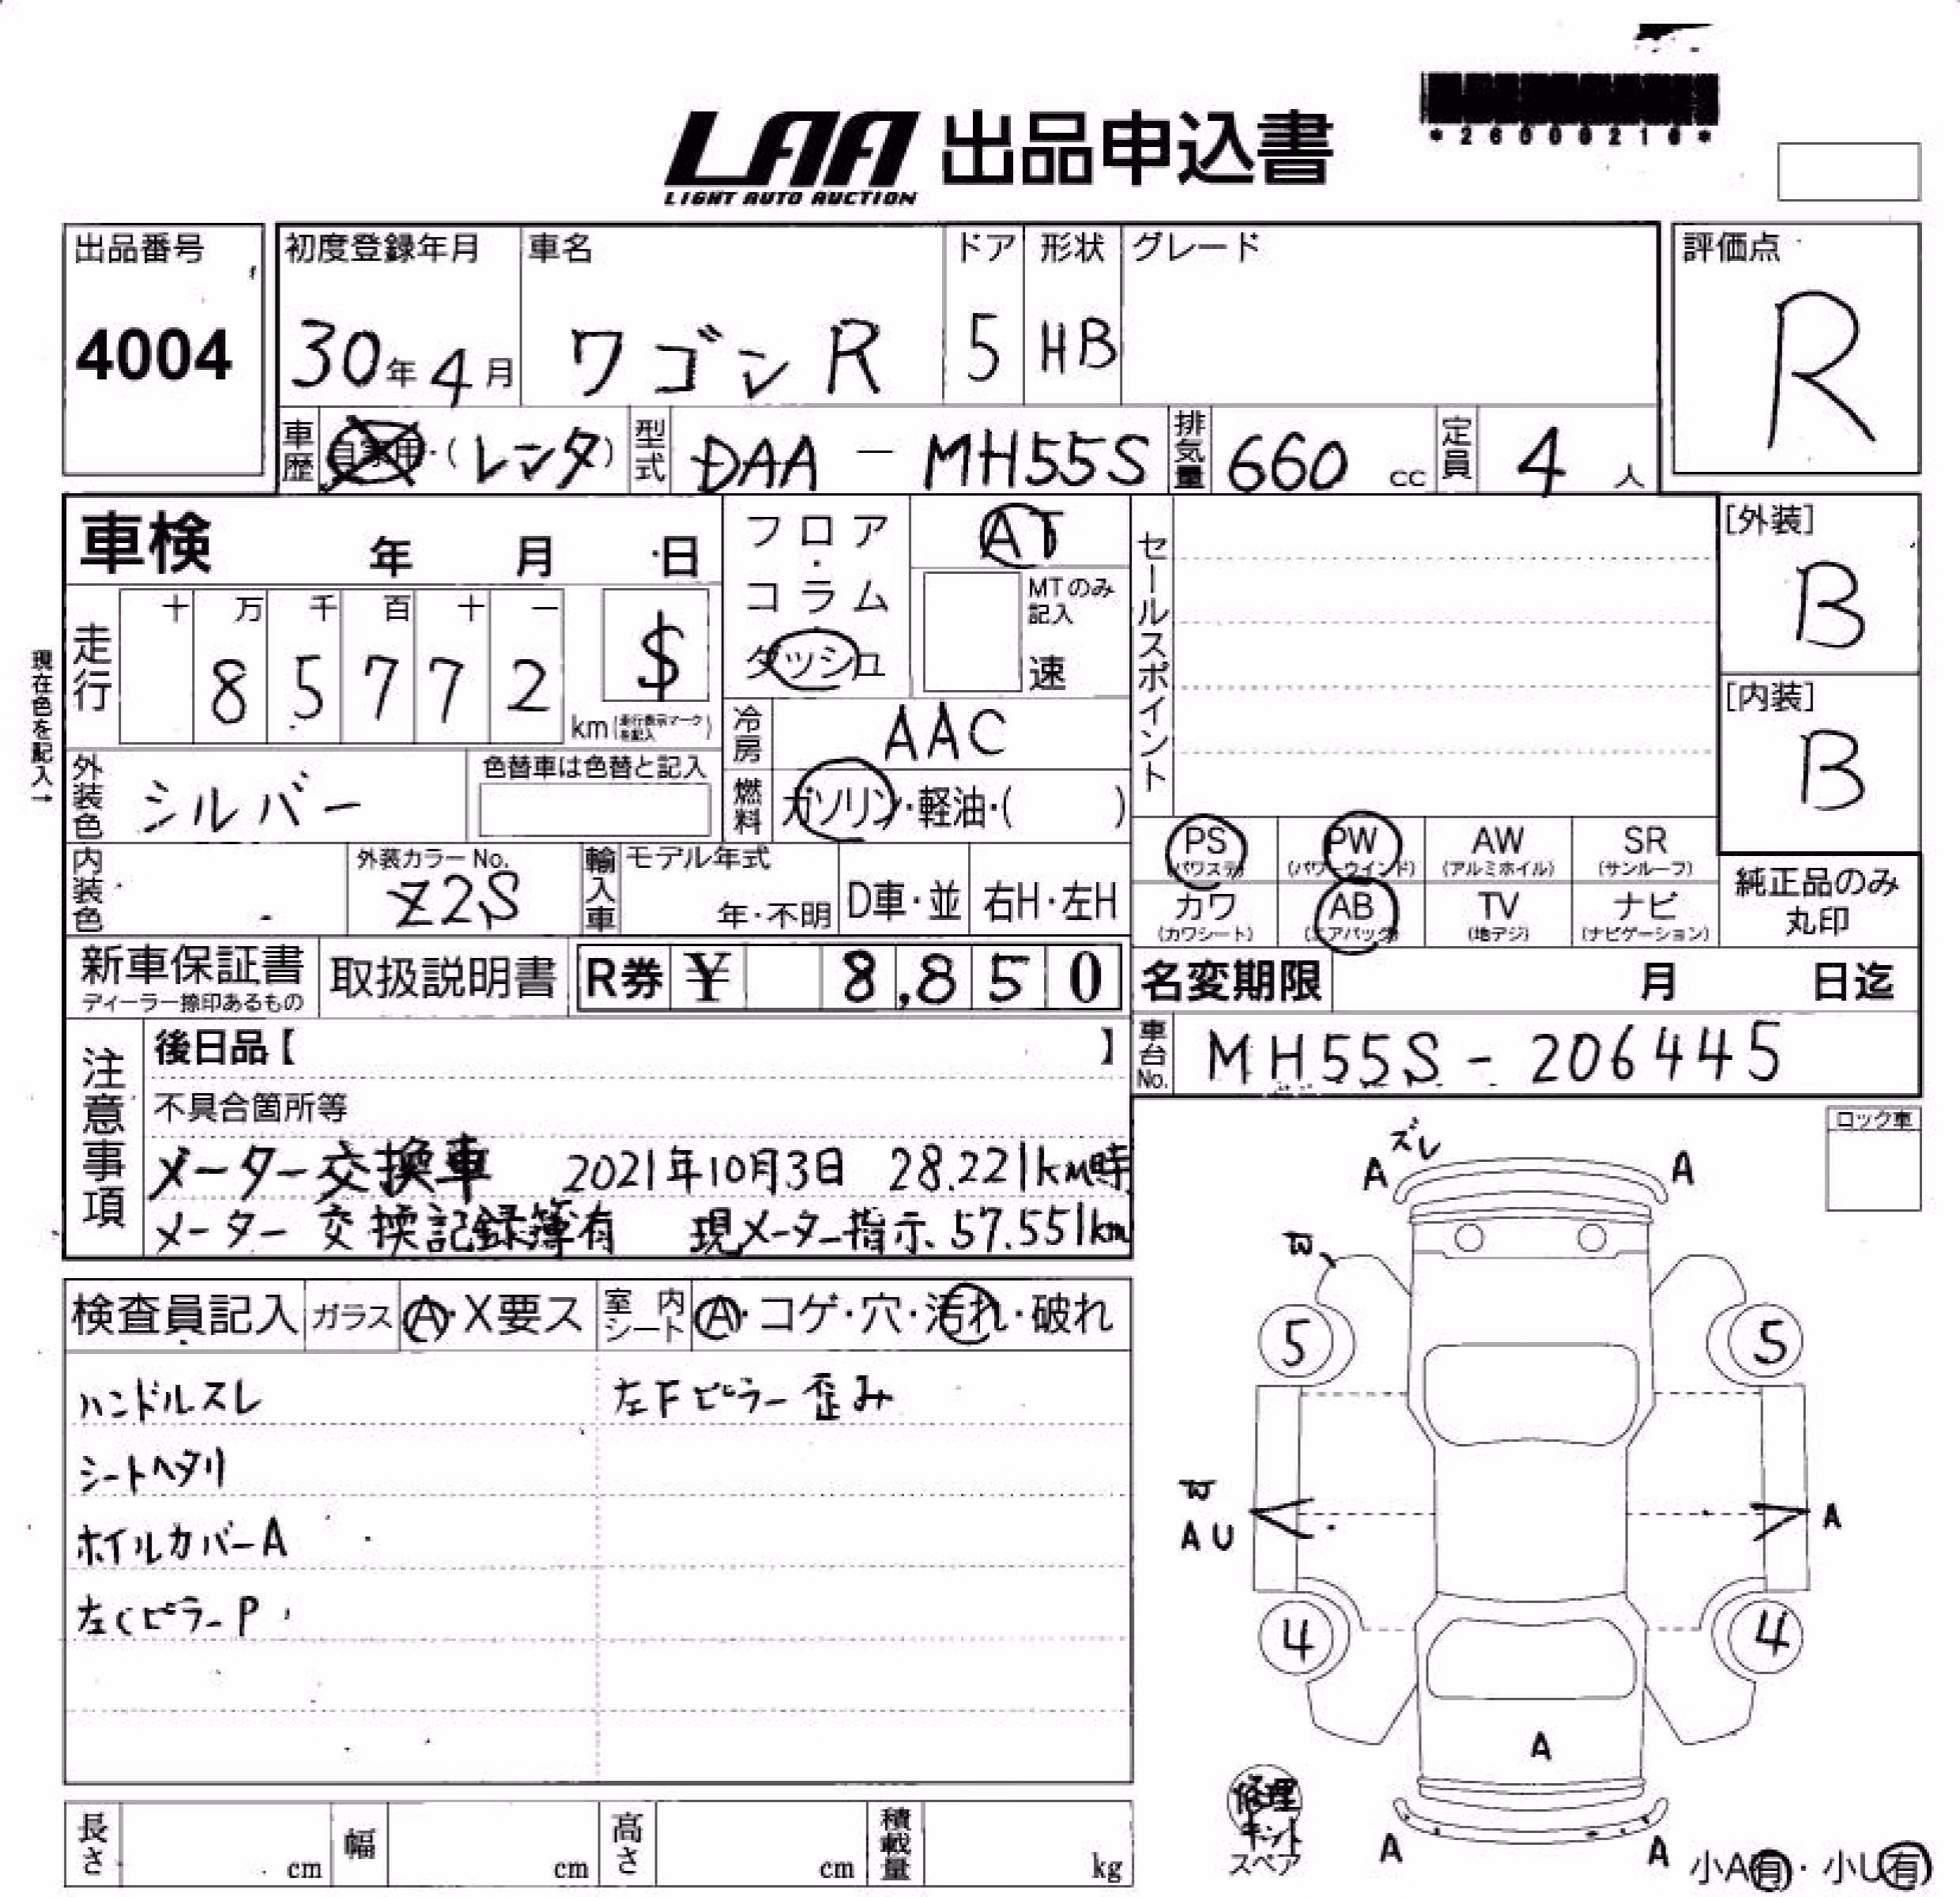 *26000210*
LAA 出品申込書
LIGHT AUTO AUCTION
出品番号 4004
初度登録年月 30年4月
車名 ワゴンR
ドア 5
形状 HB
グレード
評価点 R
車歴 自家用・(レンタ)
型式 DAA-MH55S
排気量 660 cc
定員 4 人
車検 年 月 日
フロア・コラム ダッシュ
AT
MTのみ記入 速
セールスポイント
[外装] B
[内装] B
現在色を記入→
走行 十 万 千 百 十 一
8 5 7 7 2 $
km (走行表示マークを記入)
冷房 AAC
燃料 ガソリン・軽油・( )
外装色 シルバー
色替車は色替と記入
内装色
外装カラーNo. Z2S
輸入車 モデル年式 年・不明
D車・並 右H・左H
PS (パワステ) PW (パワーウインド) AW (アルミホイル) SR (サンルーフ)
カワ (カワシート) AB (エアバック) TV (地デジ) ナビ (ナビゲーション)
純正品のみ丸印
新車保証書 ディーラー捺印あるもの
取扱説明書
R券 ¥ 8,850
名変期限 月 日迄
車台No. MH55S-206445
注意事項
後日品【 】
不具合箇所等
メーター交換車 2021年10月3日 28.221km時
メーター交換記録簿有 現メーター指示 57.551km
検査員記入 ガラス A・X要ス 室内シート A・コゲ・穴・汚れ・破れ
ハンドルスレ 左Fピラー歪み
シートヘタリ
ホイルカバーA
左CピラーP
長さ cm 幅 cm 高さ cm 積載量 kg
ロック車
ズレ
A A
5 5
A U
A
4 4
A
修理キット
スペア
A A
小A有・小U有